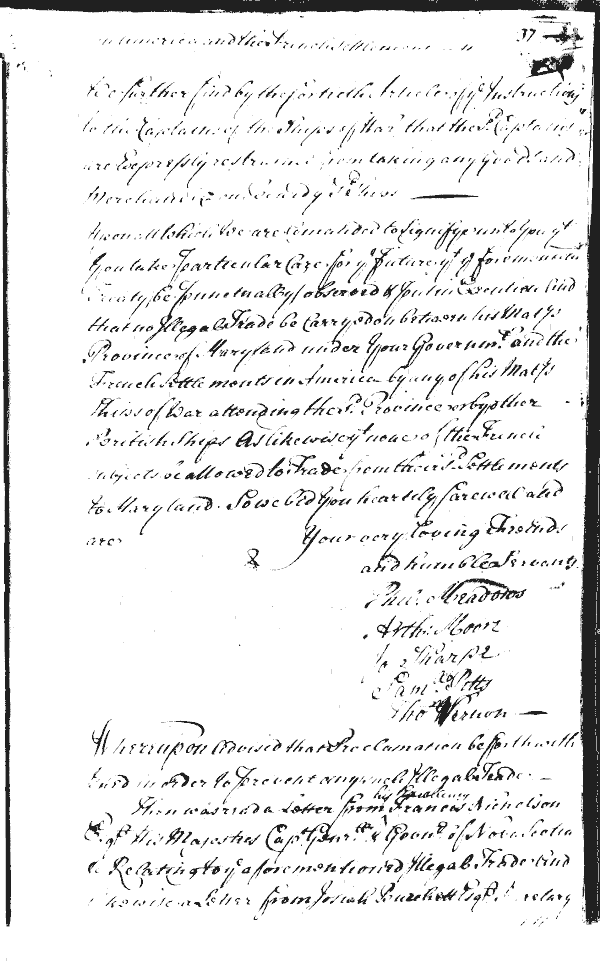 37
in America and the French settlements
We further find by the fortieth Article of ye Instructions
to the Captains of the Ships of War that the sd. Captains
are Expressly restrained from taking any goods and
Merchandize on board ye sd Ships
Upon all which We are Comanded to Signifye unto You yt
You take particular Care for ye future yt ye forementd
Treaty be punctually observed & put in Execution And
that no Illegal Trade be Carryed on between his Matys
Province of Maryland under Your Governmt. and the
French Settlements in America by any of his Matys
Ships of War attending the sd. Province or by other
British Ships As likewise yt none of the French
subjects be allowed to Trade from their sd Settlements
to Maryland. So we bid You heartily farewell and
are Your very loving Friends
& and humble Servants
Phil. Meadows
Arth: Moore
Jo Sharpe
Saml. Potts
Tho Vernon
Whereupon advised that Proclamation be forthwith
issued in order to prevent any such Illegal Trade.
his Excellency
Then was read a Letter from Francis Nicholson
Esqr. His Majesties Capt. Genrll & Govr. of Nova Scotia
& Relating to ye aforementioned Illegal Trade And
likewise a Letter from Josiah Burchett Esqr. Secretary